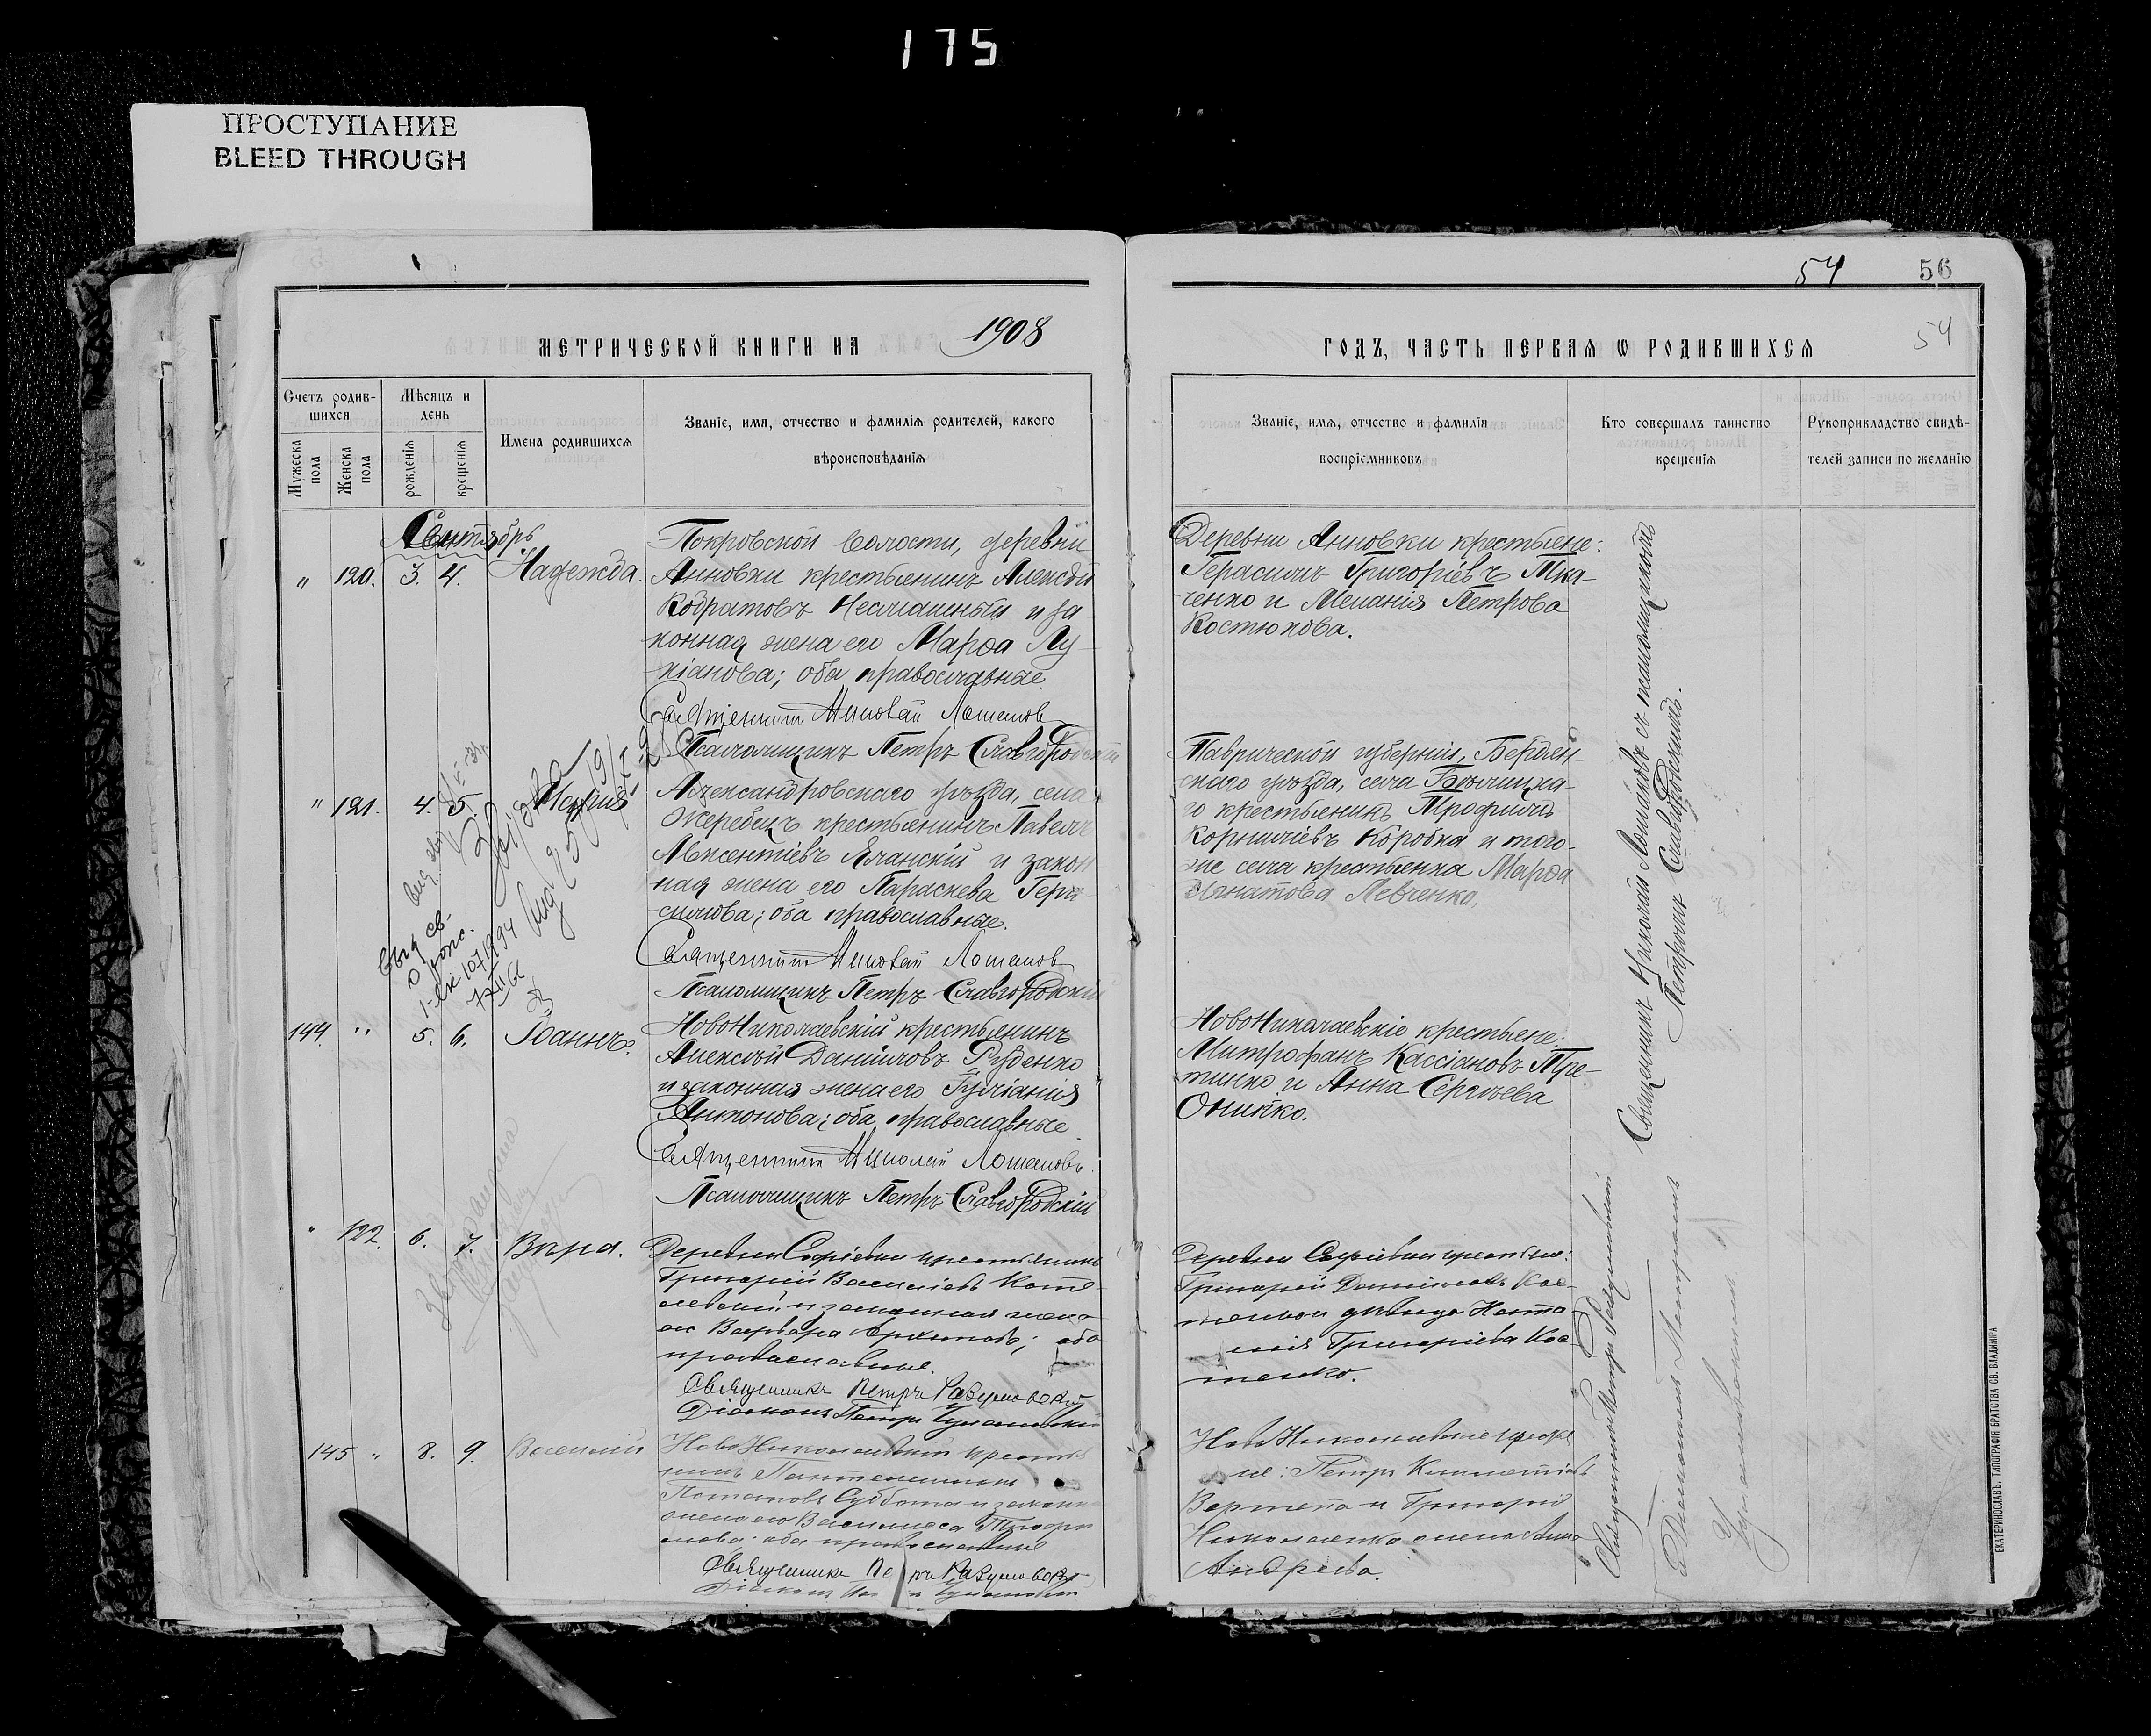 175
ПРОСТУПАНИЕ
BLEED THROUGH
54 56
МЕТРИЧЕСКОЙ КНИГИ НА 1908
ГОДЪ, ЧАСТЬ ПЕРВАЯ Ѡ РОДИВШИХСЯ 54
Счетъ родив-
шихся
Мѣсяцъ и
день
Мужеска
пола
Женска
пола
рожденія
крещенія
Имена родившихся
Званіе, имя, отчество и фамилія родителей, какого
вѣроисповѣданія
Званіе, имя, отчество и фамилія
воспріемниковъ
Кто совершалъ таинство
крещенія
Рукоприкладство свидѣ-
телей записи по желанію
Сентябрь
" 120. 3. 4. Надежда.
Покровской волости, деревни
Анновки крестьянинъ Алексѣй
Кодратовъ и за
конная жена его Марфа Лу
кіанова; оба православные
Священникъ Николай Ломановъ
Псаломщикъ Петръ Славгородскій
Деревни Анновки крестьяне:
Герасимъ Григорьевъ Тка-
ченко и Меланія Петрова
Костюкова.
" 121. 4. 5. Марія
Александровскаго уѣзда, села
Жеребецъ крестьянинъ Павелъ
Авксентіевъ Яланскій и закон
ная жена его Параскева Гера-
симова; оба православные.
Священникъ Николай Ломановъ
Псаломщикъ Петръ Славгородскій
Таврической губерніи, Бердян-
скаго уѣзда, села
го крестьянинъ Трофимъ
Корниліевъ Коробка и того-
же села крестьянка Марфа
Игнатова Левченко.
144. " 5. 6. Іоаннъ.
НовоНиколаевскій крестьянинъ
Алексѣй Даніиловъ Руденко
и законная жена его Іуліанія
Антонова; оба православные
Священникъ Николай Ломановъ.
Псаломщикъ Петръ Славгородскій
НовоНиколаевскіе крестьяне:
Митрофанъ Кассіановъ Тре-
тинко и Анна Сергѣева
Онипко.
" 122. 6. 7. Вѣра.
Деревни Софіевки крестьянинъ
Григорій Васильевъ Кот
левскій и законная жена
его Варвара; оба
православные.
Священникъ Петръ Разумовскій
Діаконъ Петръ
Деревни Софіевки крестьяне:
Григорій Даніиловъ Кос-
тенко и дѣвица Ната-
лія Григорьева Кос-
тенко.
145 " 8. 9. Василій
НовоНиколаевскій крестья
нинъ Пантелеимонъ
Потаповъ Суббота и законн
жена его Василиса Трофи
мова; оба православные
Священникъ Петръ Разумовскій
НовоНиколаевскіе крестья
не: Петръ
Вертепа и Григорія
Николаенко жена Анна
Андреева.
Священникъ Николай Ломановъ съ псаломщикомъ
Петромъ Славгородскимъ.
Священникъ Петръ Разумовскій
съ Діакономъ Петромъ
ЕКАТЕРИНОСЛАВЪ. ТИПОГРАФІЯ БРАТСТВА СВ. ВЛАДИМІРА